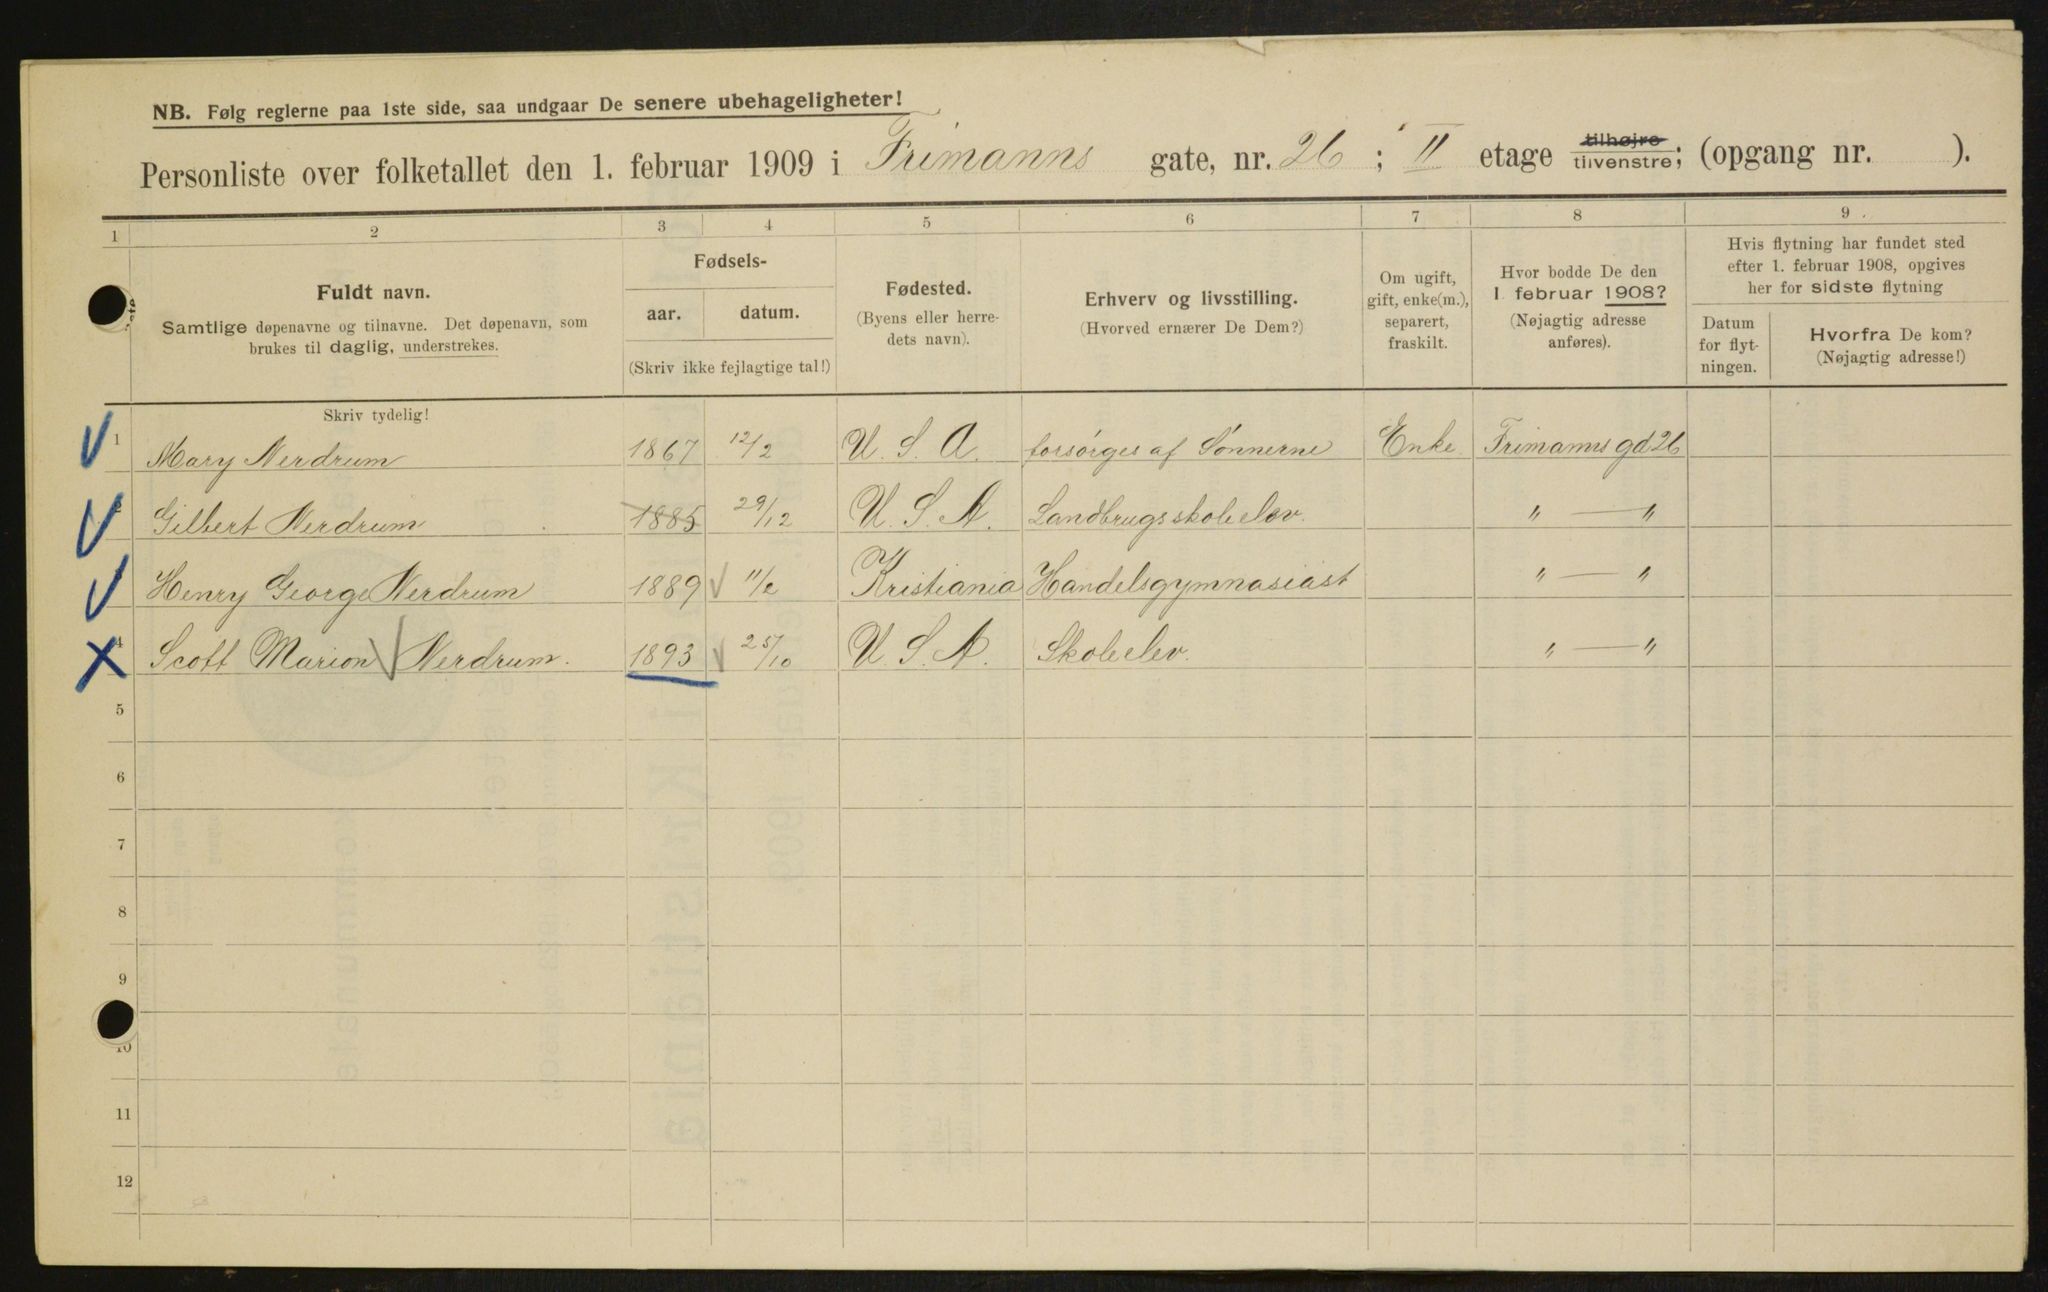 NB. Følg reglerne paa 1ste side, saa undgaar De senere ubehageligheter!
Personliste over folketallet den 1. februar 1909 i Frimanns gate, nr. 26 ; II etage tilhøjre tilvenstre; (opgang nr. ).
1 2 3 4 5 6 7 8 9
Fuldt navn.
Samtlige døpenavne og tilnavne. Det døpenavn, som
brukes til daglig, understrekes.
Fødsels-
aar. datum.
(Skriv ikke fejlagtige tal!)
Fødested.
(Byens eller herre-
dets navn).
Erhverv og livsstilling.
(Hvorved ernærer De Dem?)
Om ugift,
gift, enke(m.),
separert,
fraskilt.
Hvor bodde De den
1. februar 1908?
(Nøjagtig adresse
anføres).
Hvis flytning har fundet sted
efter 1. februar 1908, opgives
her for sidste flytning
Datum
for flyt-
ningen.
Hvorfra De kom?
(Nøjagtig adresse!)
Skriv tydelig!
1 Mary Nerdrum 1867 12/2 U. S. A. forsørges af Sønnerne Enke Frimanns gd 26
2 Gilbert Nerdrum 1885 29/12 U. S. A. Landbrugsskoleelev. " — "
Henry George Nerdrum 1889 11/2 Kristiania Handelsgymnasiast " — "
4 Scott Marion Nerdrum. 1893 25/10 U. S. A. Skoleelev. " — "
5
6
7
8
9
10
11
12